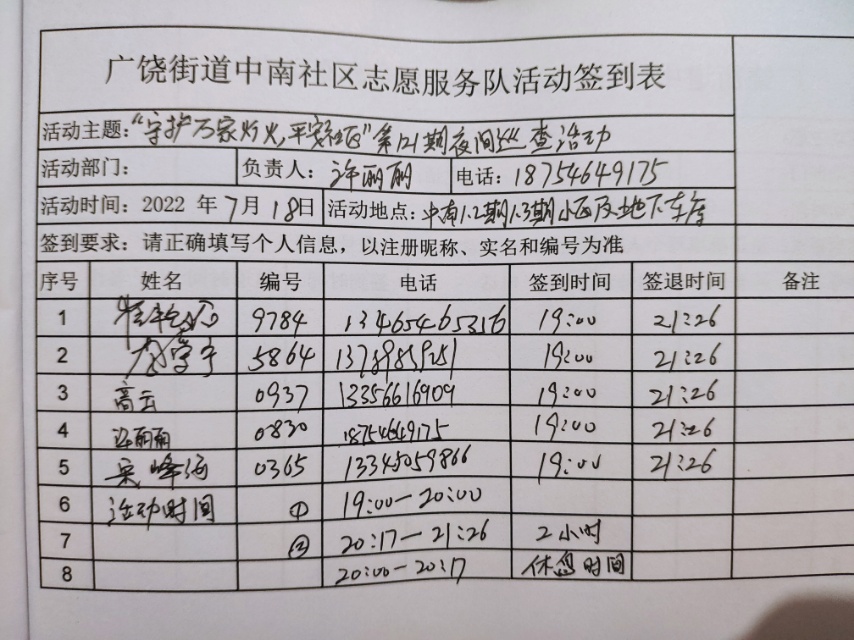 广饶街道中南社区志愿服务队活动签到表
活动主题："守护万家灯火,平安社区"第121期夜间巡查活动
活动部门： 负责人：许丽丽 电话：18754649175
活动时间：2022 年 7 月 18日 活动地点：中南1.2期1.3期小区及地下车库
签到要求：请正确填写个人信息，以注册昵称、实名和编号为准
序号 姓名 编号 电话 签到时间 签退时间 备注
1 9784 13465465316 19:00 21:26
2 5864 19:00 21:26
3 高云 0937 13356616909 19:00 21:26
4 许丽丽 0830 18754649175 19:00 21:26
5 宋峰海 0365 13345059866 19:00 21:26
6 活动时间 ① 19:00-20:00
7 ② 20:17-21:26 2小时
8 20:00-20:17 休息时间